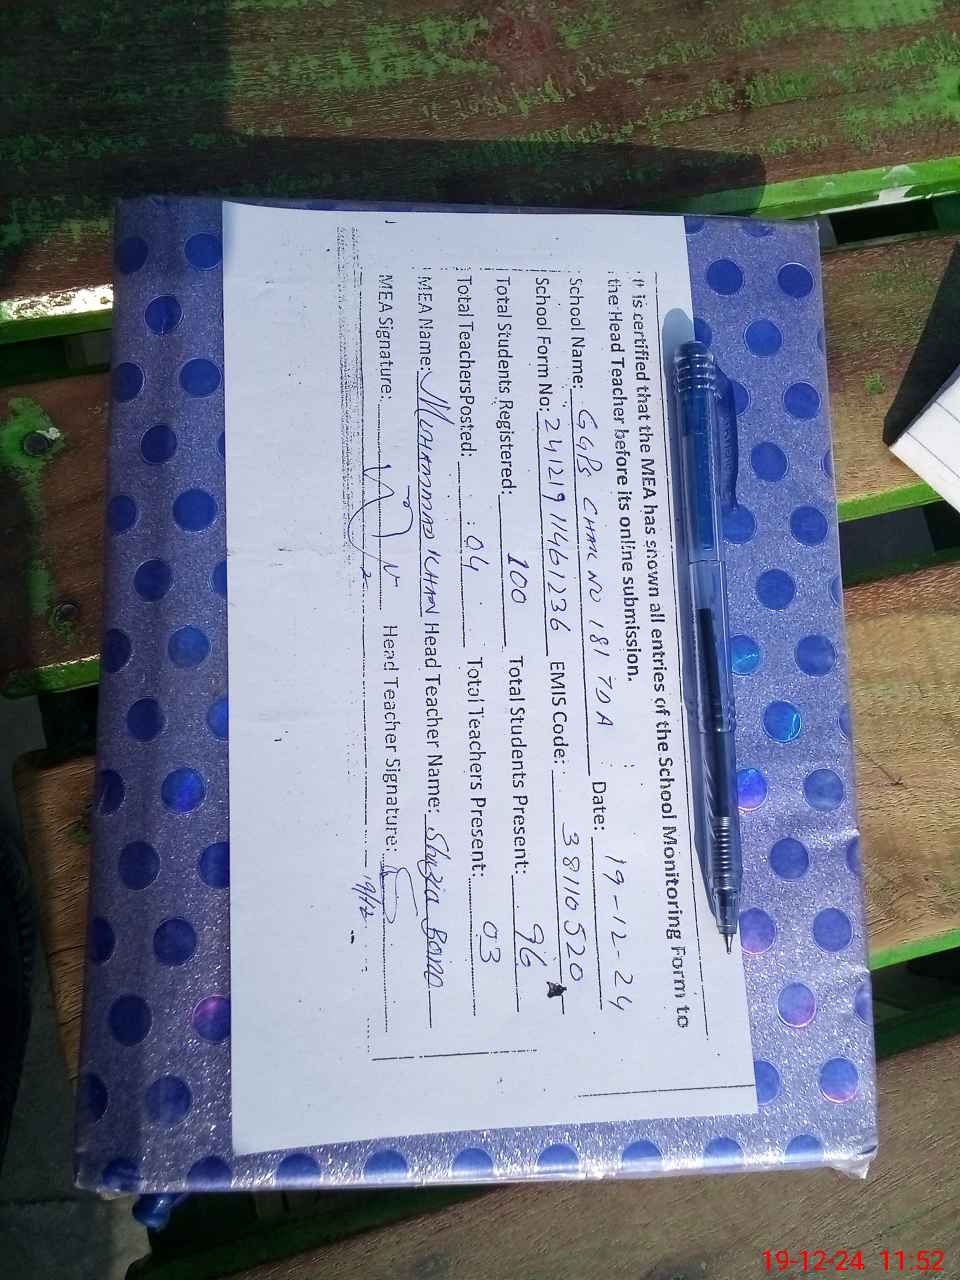 It is certified that the MEA has shown all entries of the School Monitoring Form to
the Head Teacher before its online submission.
School Name: GGPS CHAK NO 181 TDA Date: 19-12-24
School Form No: 24121911461236 EMIS Code: 38110520
Total Students Registered: 100 Total Students Present: 96
Total TeachersPosted: 04 Total Teachers Present: 03
MEA Name: MUHAMMAD KHAN Head Teacher Name:
MEA Signature: Head Teacher Signature:
19/12
19-12-24 11:52